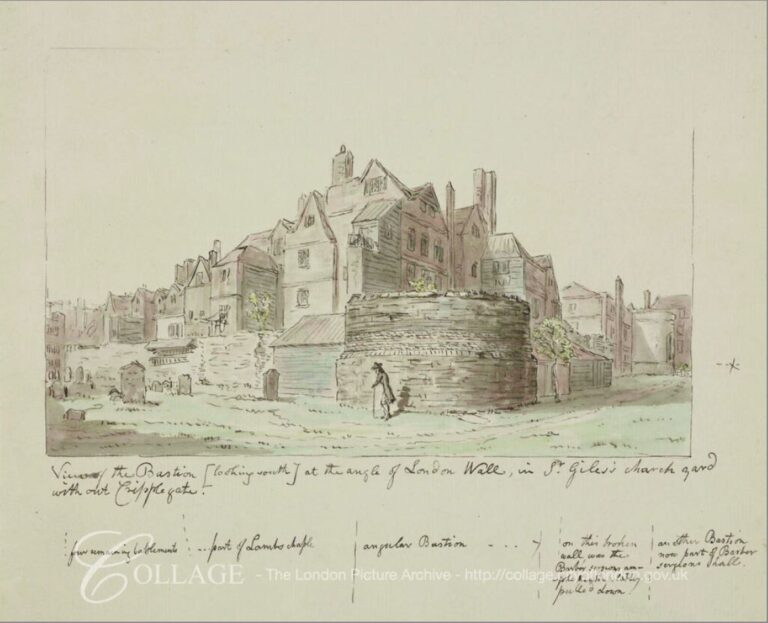 View of the Bastion [looking south] at the angle of London Wall, in St Giles's church yard
without Cripplegate.
four remaining batlements
.. part of Lambs chaple
angular Bastion - - -
on this broken
wall was the
Barber surgions
pulled down.
an other Bastion
now part of Barber
surgions hall.
COLLAGE - The London Picture Archive - http://collage. .gov.uk